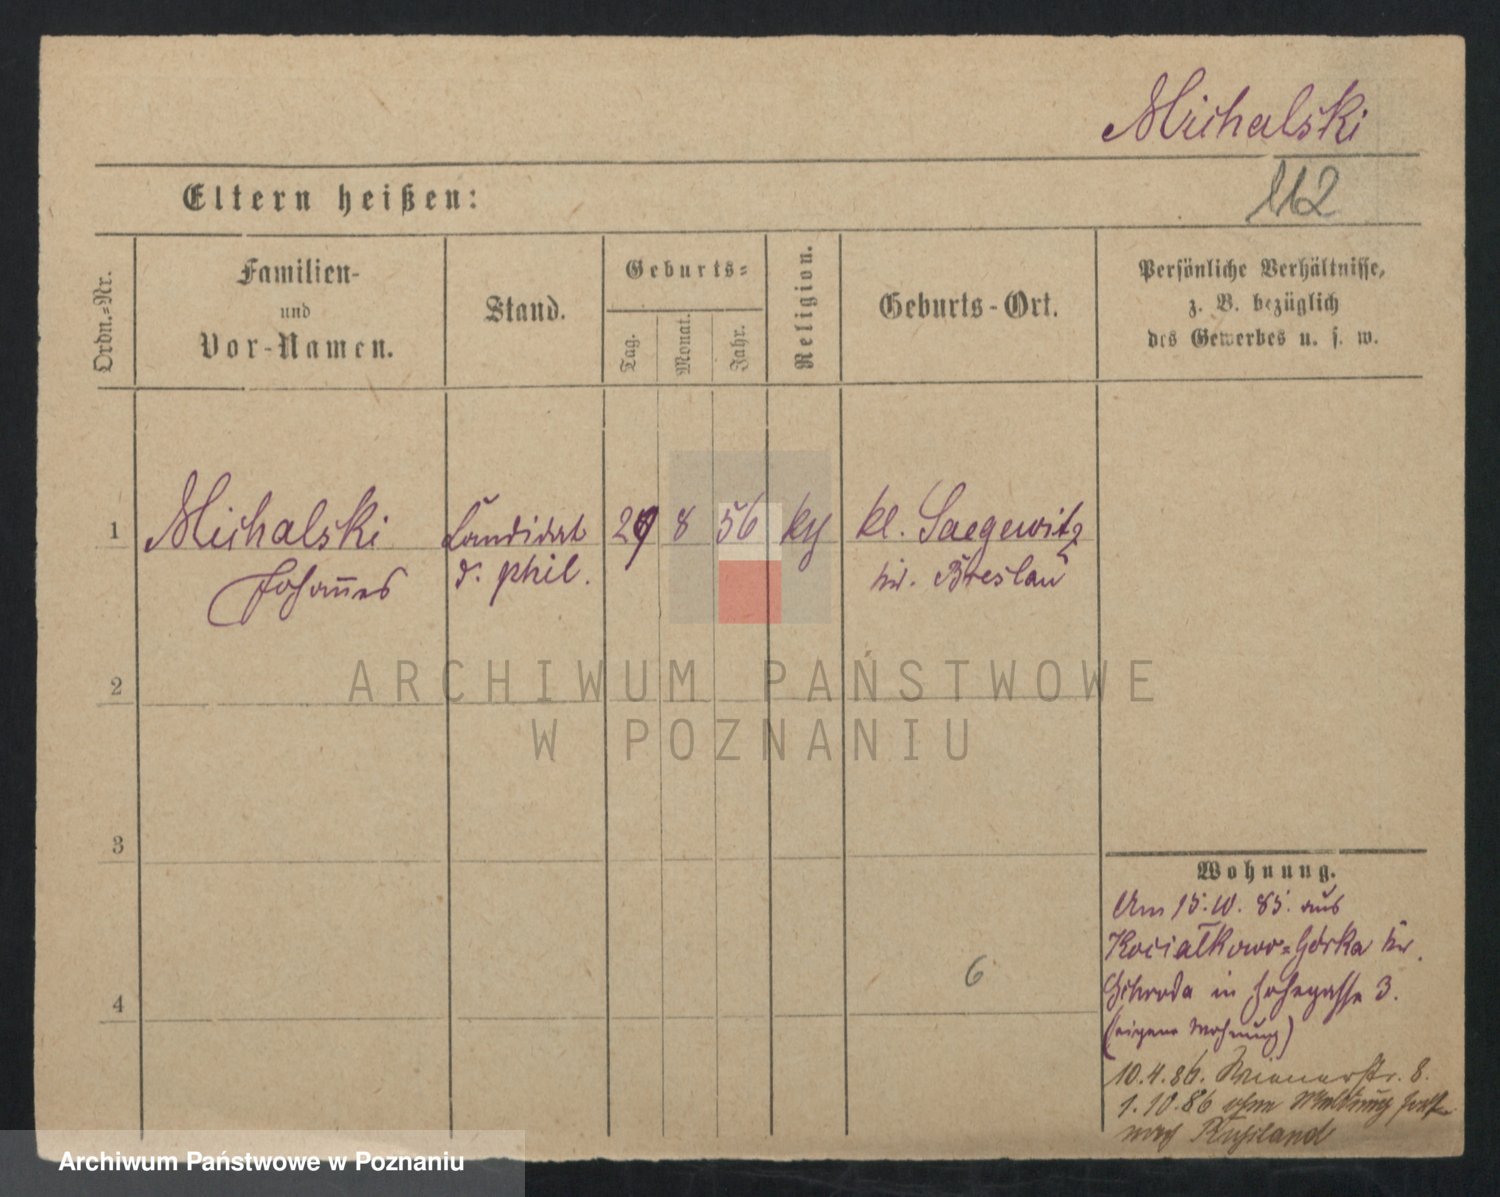 Michalski
112
Eltern heißen:
Ordn.-Nr.
Familien-
und
Vor-Namen.
Stand.
Geburts-
Tag.
Monat.
Jahr.
Religion.
Geburts-Ort.
Persönliche Verhältnisse,
z. B. bezüglich
des Gewerbes u. s. w.
1 Michalski Candidat 29 8 56 kl. Saegewitz
Johannes d. phil. kr. Breslau
2
ARCHIWUM PAŃSTWOWE
W POZNANIU
3
Wohnung.
Am 15. 10. 85. aus
Kociałkowo-Górka kr.
6
Schroda in Hohegasse 3.
4
(eigene Wohnung)
10.4.86. Wienerstr. 8.
1.10.86 ohne Meldung
nach Rußland
Archiwum Państwowe w Poznaniu